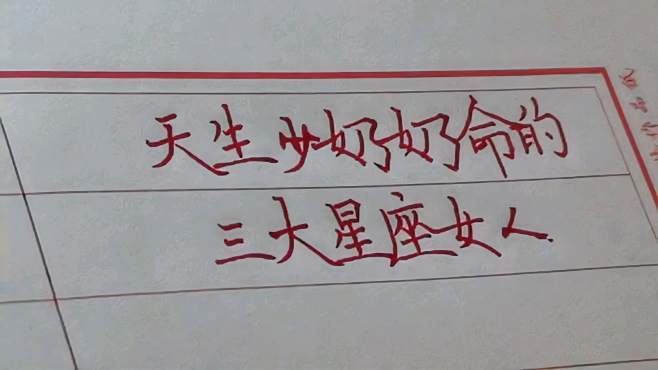 天生少奶奶命的
三大星座女人